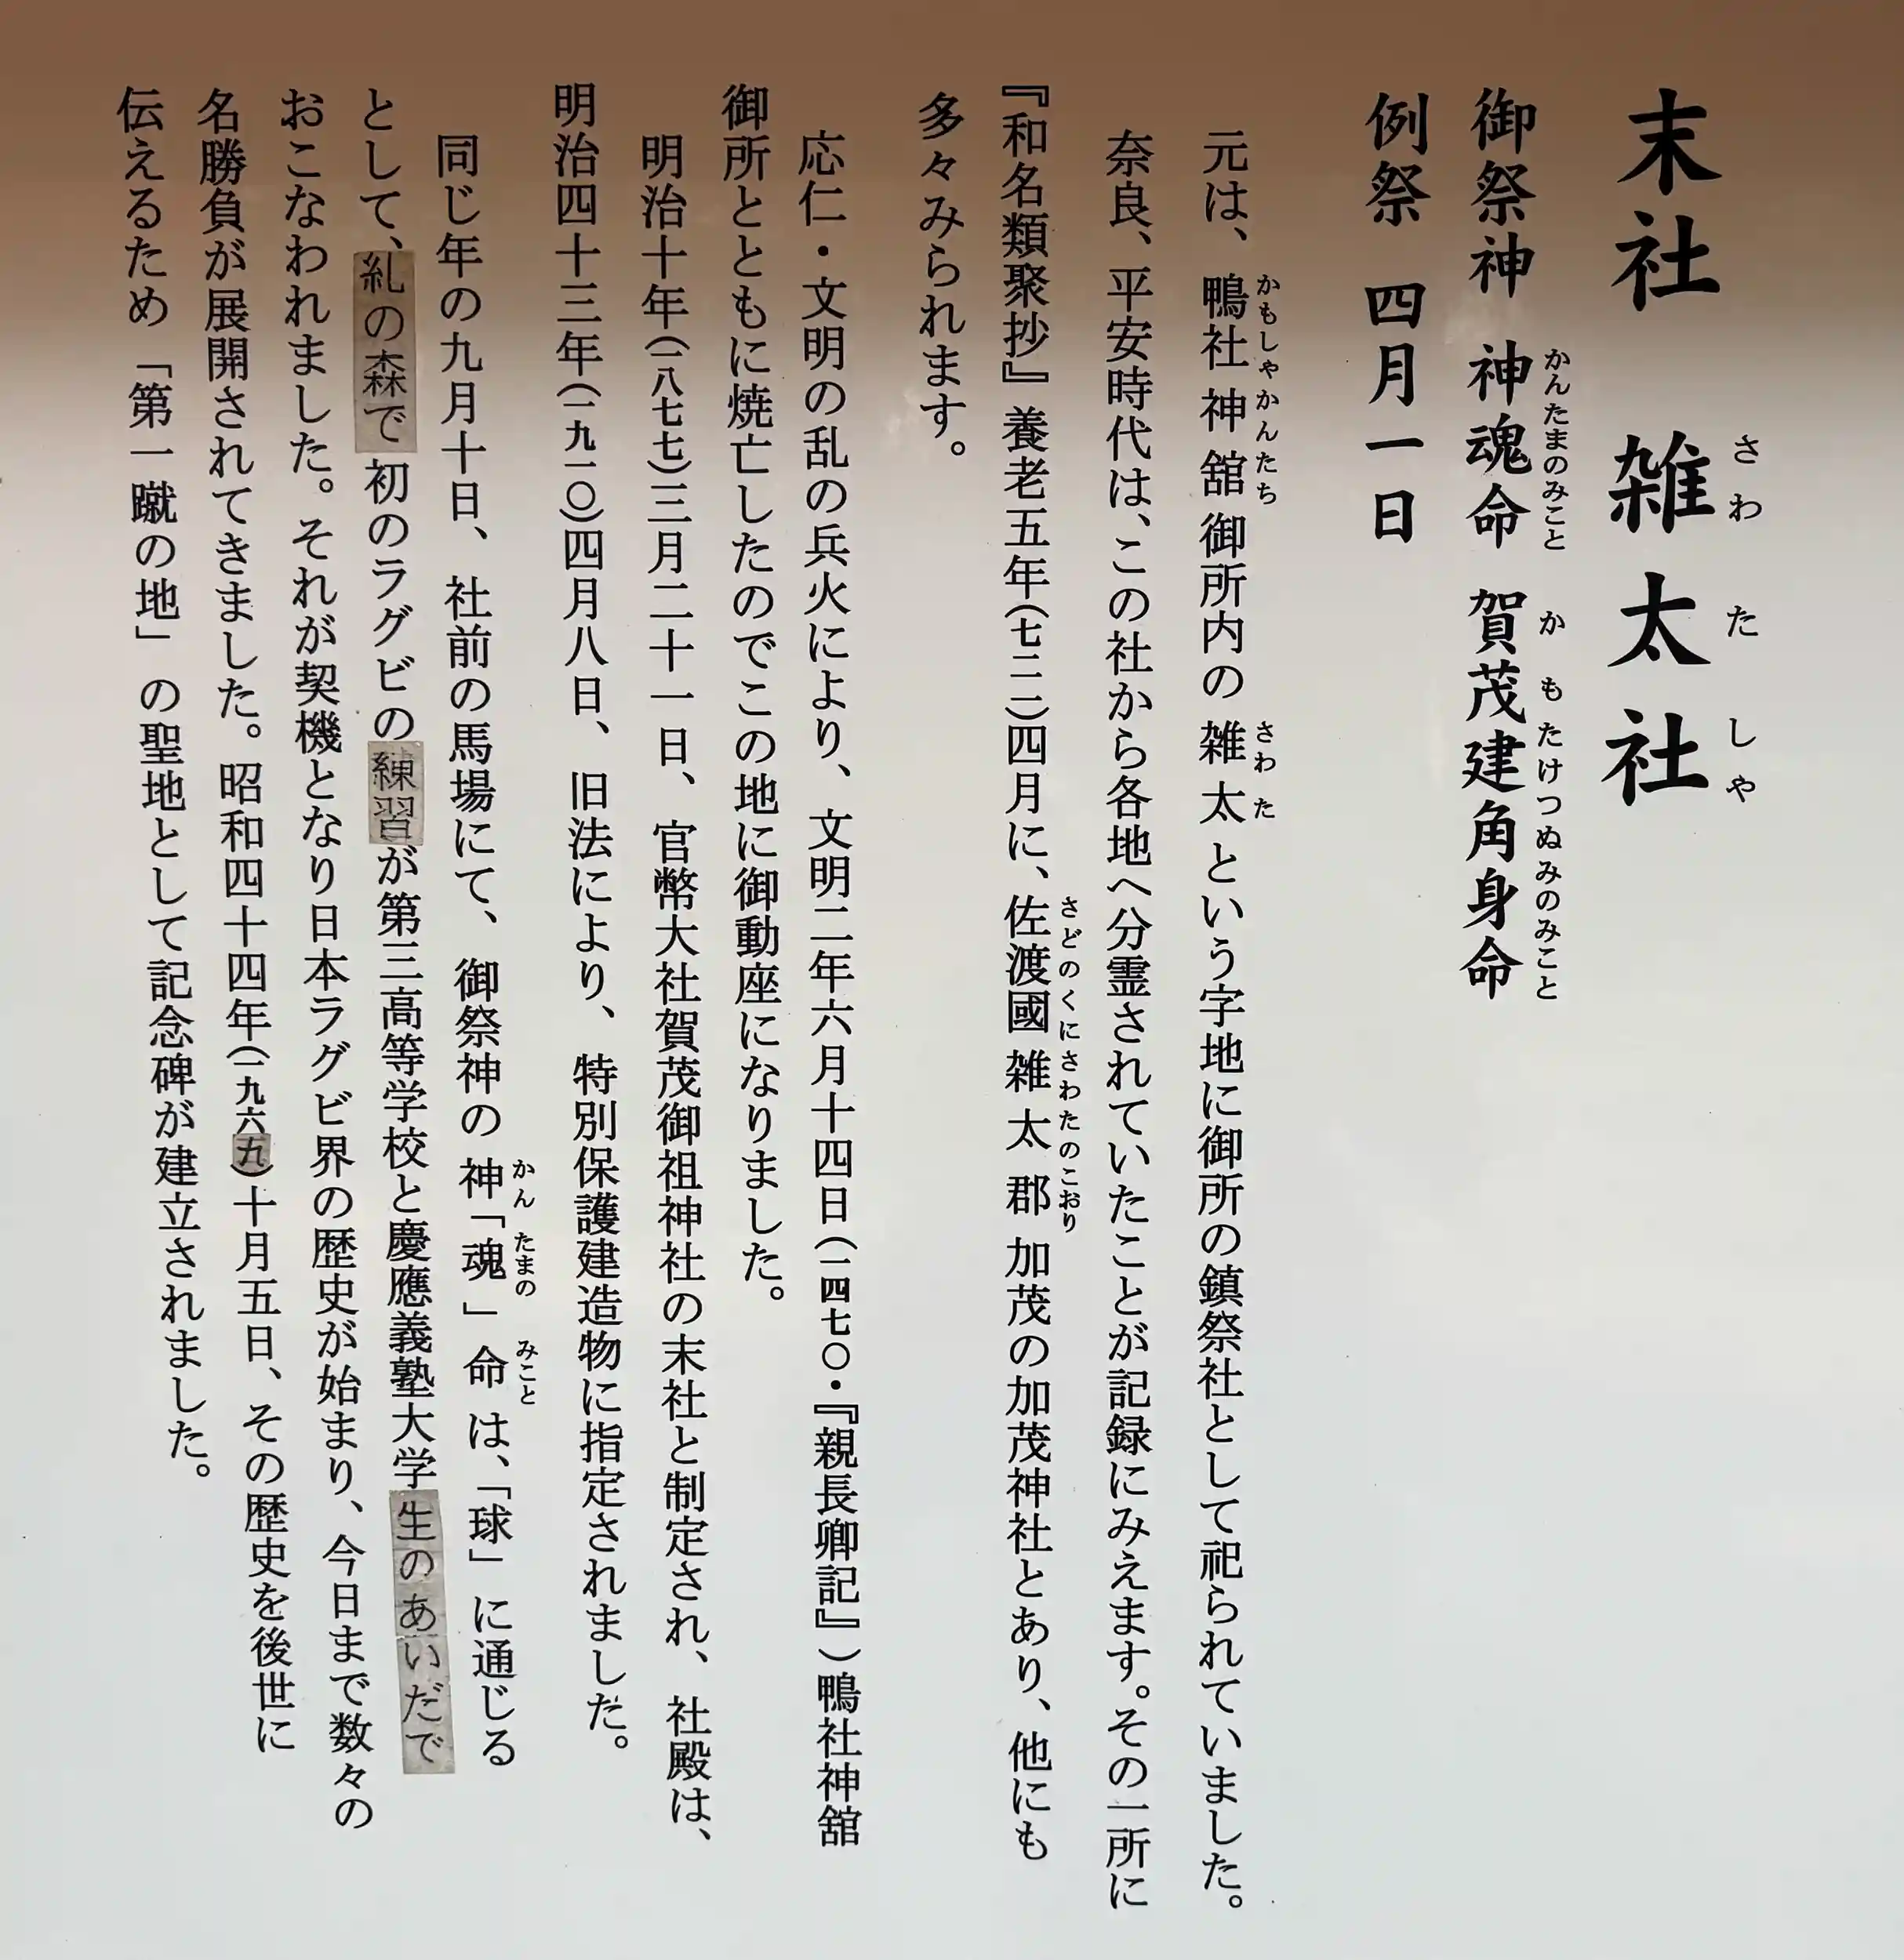 末社 雑太社
さわたしゃ
御祭神 神魂命 賀茂建角身命
かんたまのみこと かもたけつぬみのみこと
例祭 四月一日
元は、鴨社神舘御所内の雑太という字地に御所の鎮祭社として祀られていました。
かもしゃかんたち さわた
奈良、平安時代は、この社から各地へ分霊されていたことが記録にみえます。その一所に
『和名類聚抄』養老五年(七二一)四月に、佐渡國雑太郡加茂の加茂神社とあり、他にも
さどのくにさわたのこおり
多々みられます。
応仁・文明の乱の兵火により、文明二年六月十四日(一四七〇・『親長卿記』)鴨社神舘
御所とともに焼亡したのでこの地に御動座になりました。
明治十年(一八七七)三月二十一日、官幣大社賀茂御祖神社の末社と制定され、社殿は、
明治四十三年(一九一〇)四月八日、旧法により、特別保護建造物に指定されました。
同じ年の九月十日、社前の馬場にて、御祭神の神「魂」命は、「球」に通じる
かん たまの みこと
として、糺の森で初のラグビの練習が第三高等学校と慶應義塾大学生のあいだで
おこなわれました。それが契機となり日本ラグビ界の歴史が始まり、今日まで数々の
名勝負が展開されてきました。昭和四十四年(一九六九)十月五日、その歴史を後世に
伝えるため「第一蹴の地」の聖地として記念碑が建立されました。